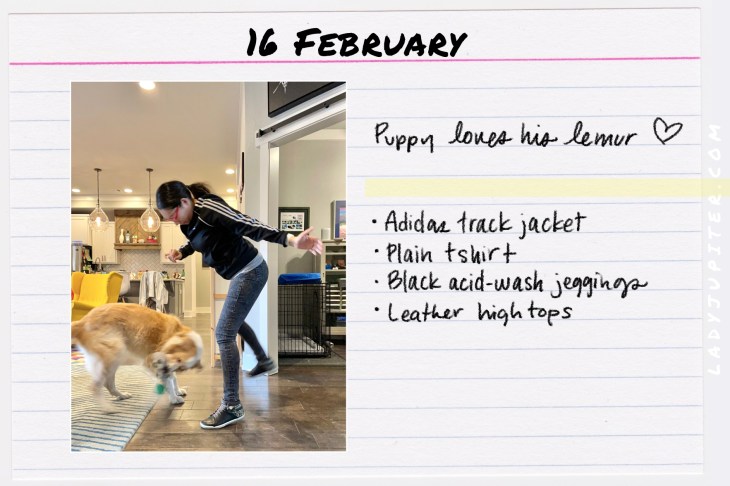 16 February
Puppy loves his lemur ♡
• Adidas track jacket
• Plain tshirt
• Black acid-wash jeggings
• Leather hightops
LADYJUPITER.COM